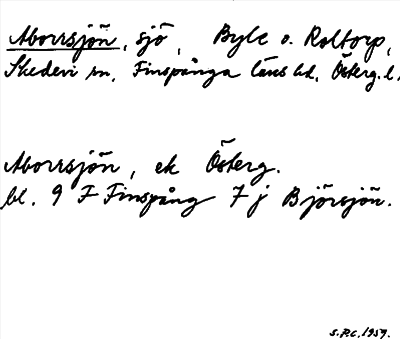 Aborrsjön, sjö, Byle o. Roltorp,
Skedevi sn, Finspånga läns hd, Österg. l.
Aborrsjön, ek Österg.
bl. 9 F Finspång 7 j Björsjön.
1959.